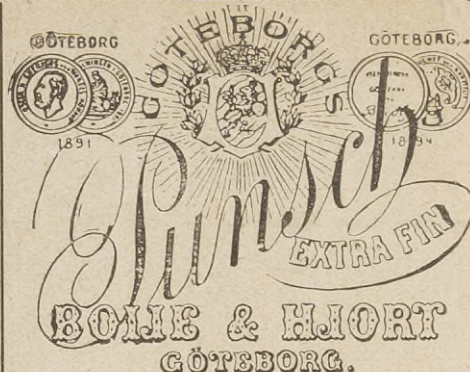 GÖTEBORG
GÖTEBORGS
GÖTEBORG.
1891
Punsch
EXTRA FIN
BOIJE & HJORT
GÖTEBORG.